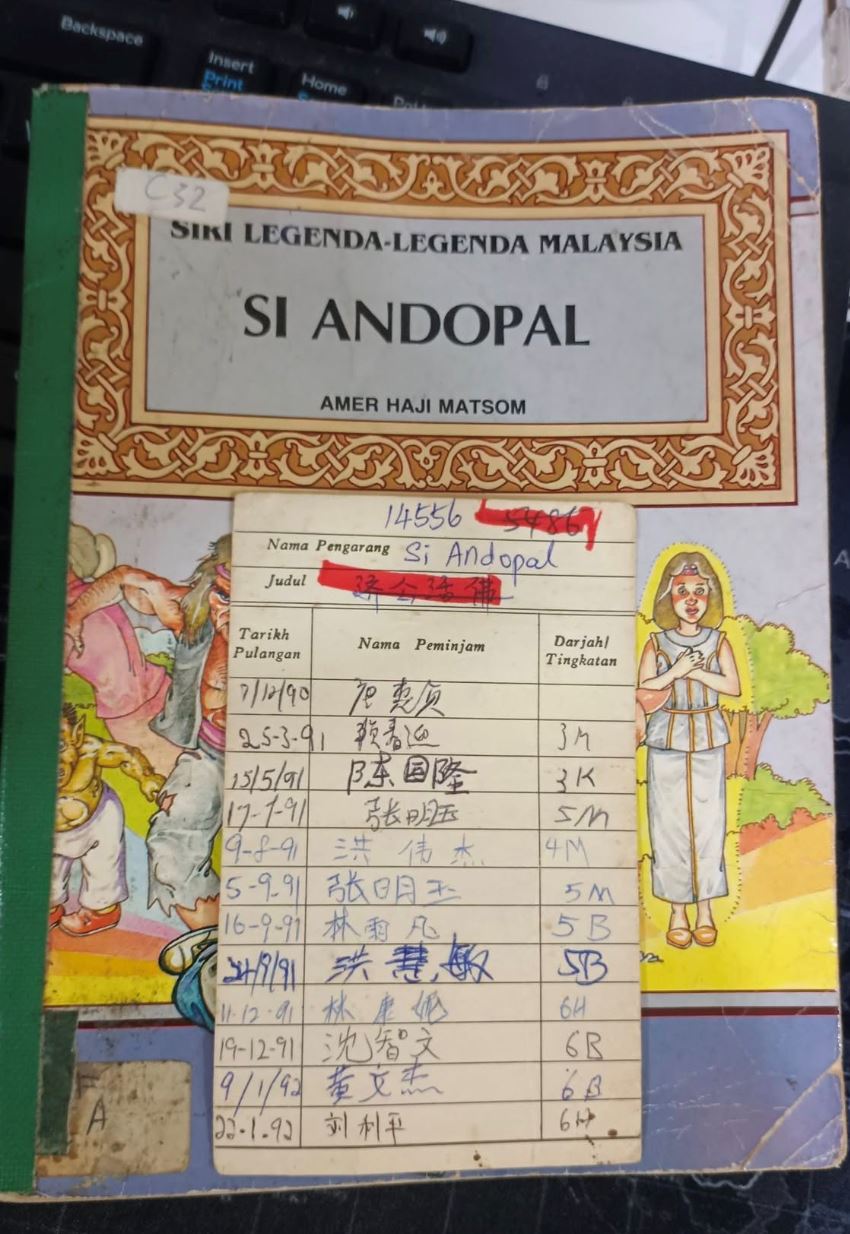 Backspace
Insert
Print
Home
C32
SIRI LEGENDA-LEGENDA MALAYSIA
SI ANDOPAL
AMER HAJI MATSOM
14556 54867
Nama Pengarang Si Andopal
Judul 济公活佛
Tarikh Pulangan Nama Peminjam Darjah/Tingkatan
7/12/90
25-3-91 3M
15/5/91 陈国隆 3K
17-7-91 张明玉 5M
9-8-91 洪伟杰 4M
5-9-91 张明玉 5M
16-9-91 林雨凡 5B
24/9/91 洪慧敏 5B
11-12-91 林康 6H
19-12-91 沈智文 6B
9/1/92 黄文杰 6B
22-1-92 刘利平 6H
F
A